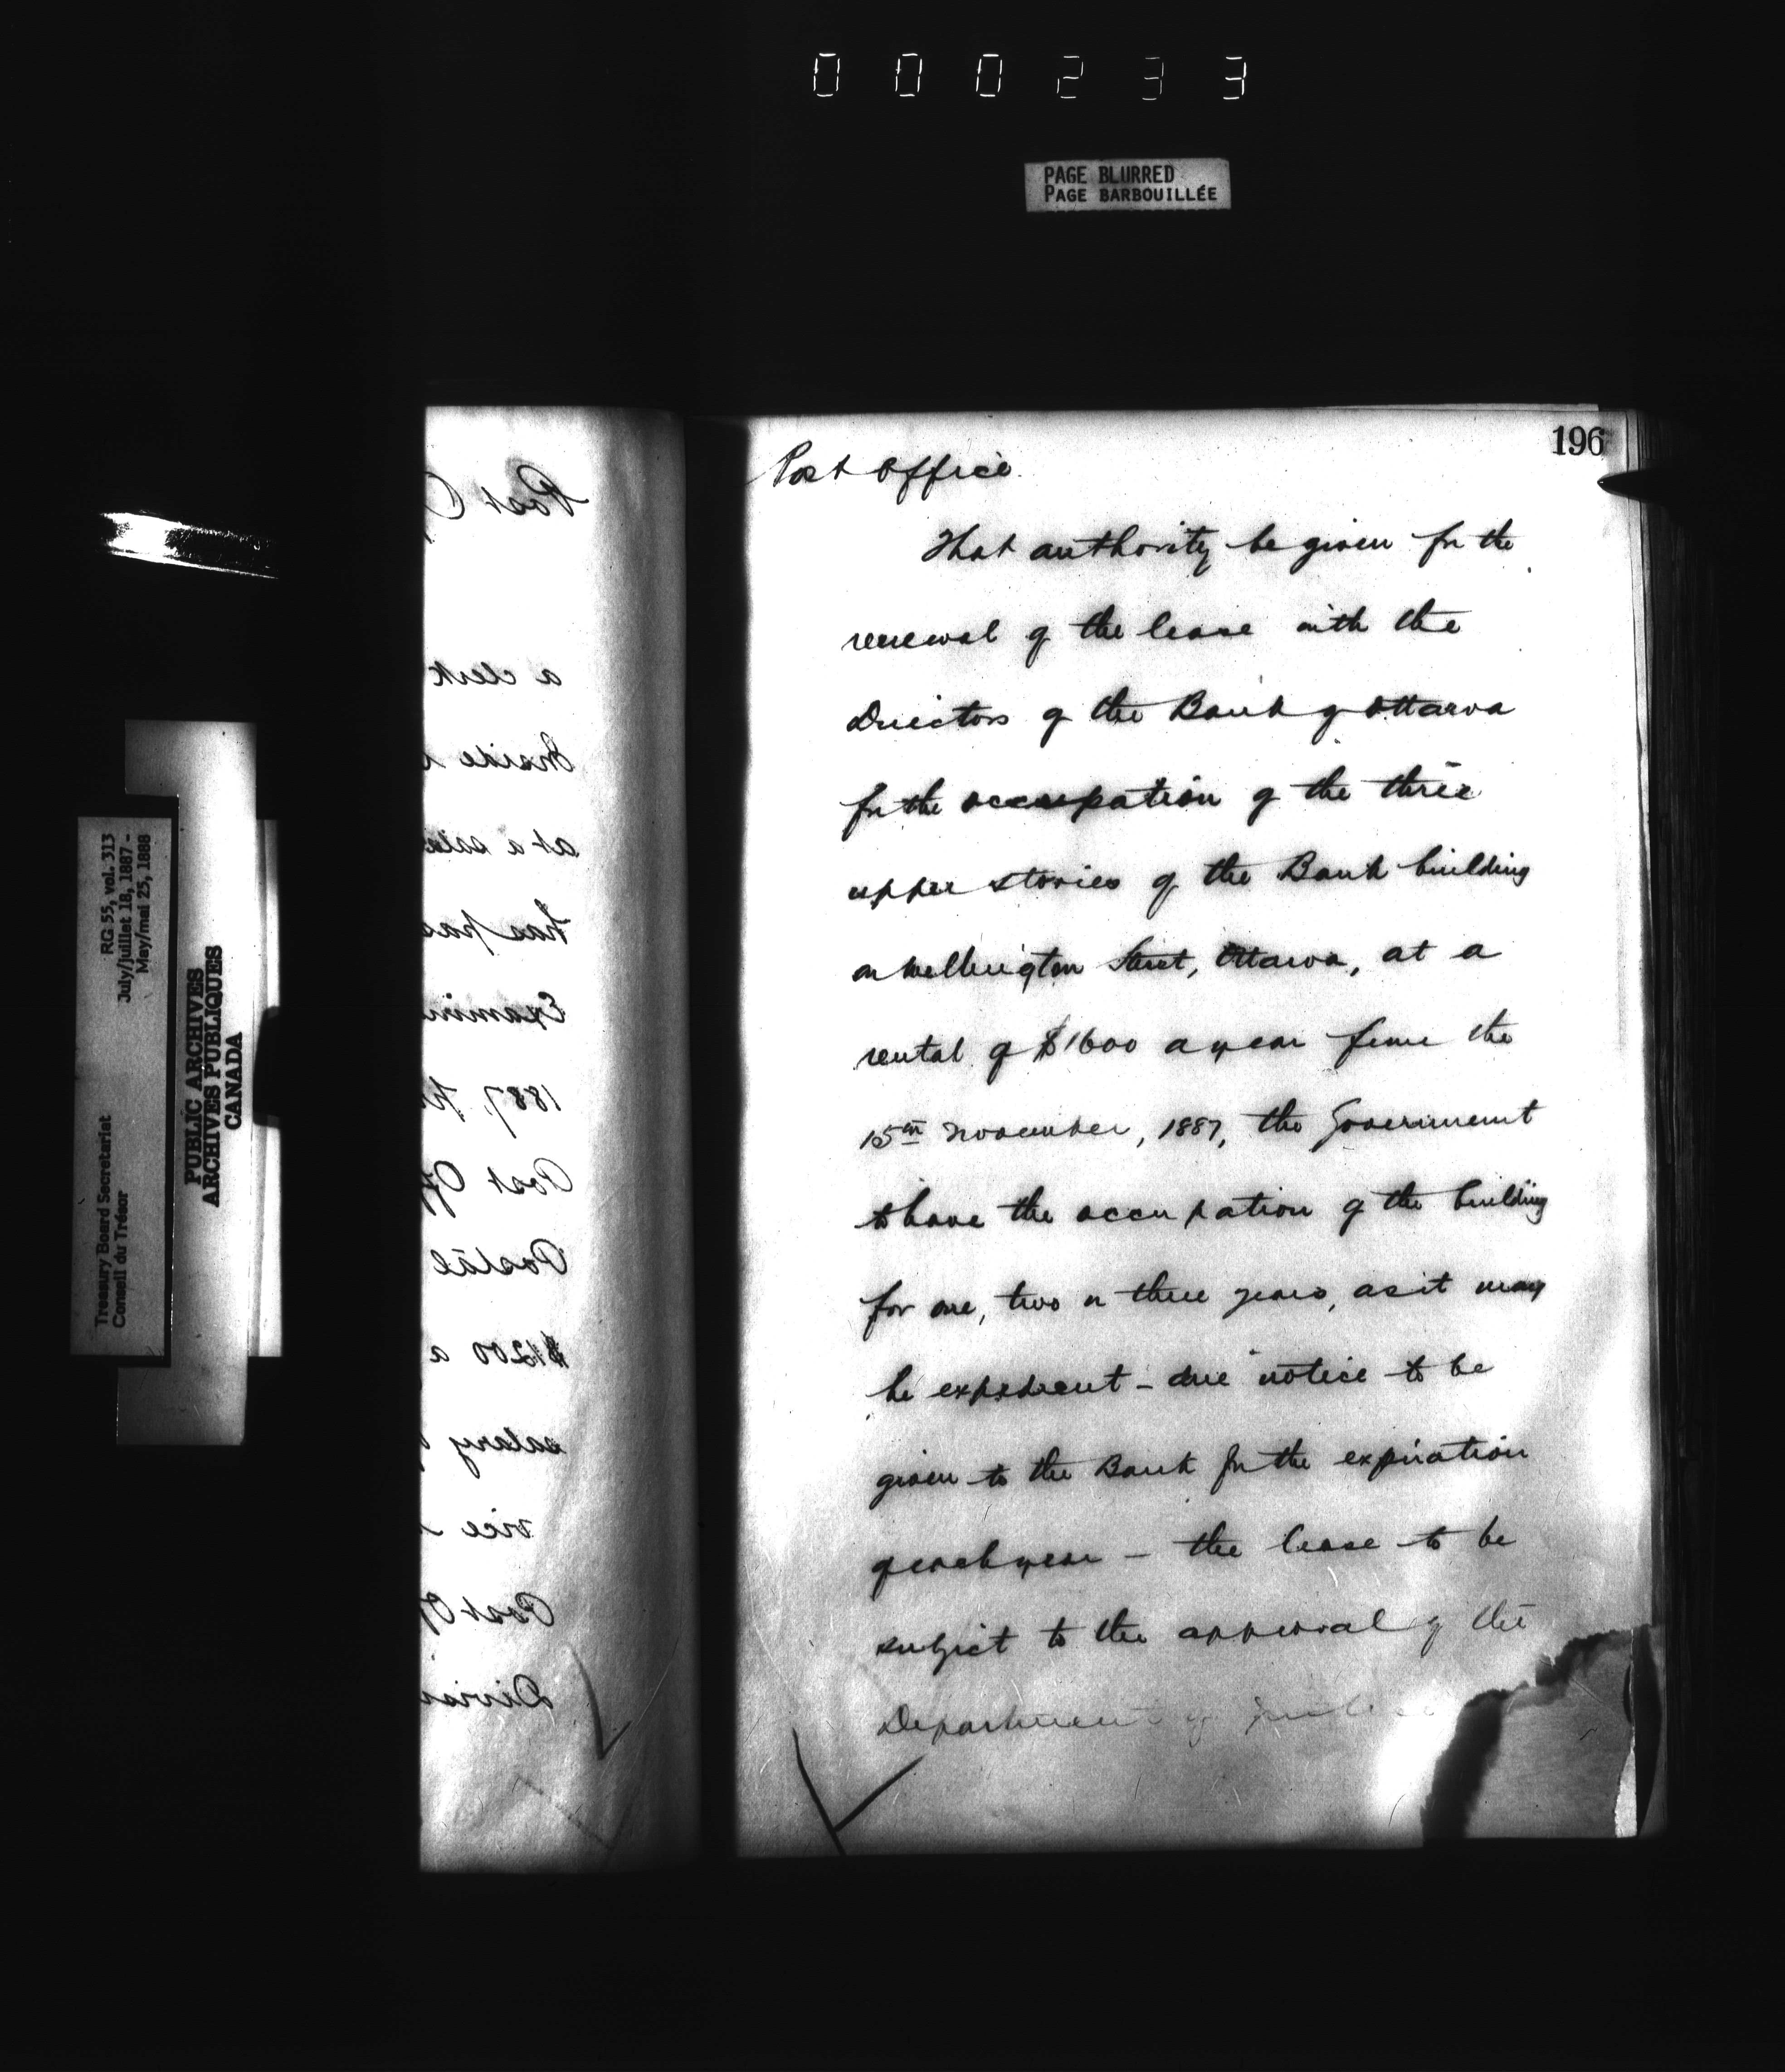 000233
PAGE BLURRED
PAGE BARBOUILLÉE
196
Post Office
That authority be given for the
renewal of the lease with the
Directors of the Bank of Ottawa
for the occupation of the three
upper stories of the Bank building
on Wellington Street, Ottawa, at a
rental of $1600 a year from the
15th November, 1887, the Government
to have the occupation of the building
for one, two or three years, as it may
be expedient - due notice to be
given to the Bank for the expiration
of each year - the lease to be
subject to the approval of the
Department of Justice
Post O
a clerk
Inside
at a sala
has pas
Examin
1887,
Post Of
Postal
$1200 a
salary
vice
Post Of
Divisi
RG 55, vol. 313
July/juillet 18, 1887 -
May/mai 25, 1888
Treasury Board Secretariat
Conseil du Trésor
PUBLIC ARCHIVES
ARCHIVES PUBLIQUES
CANADA